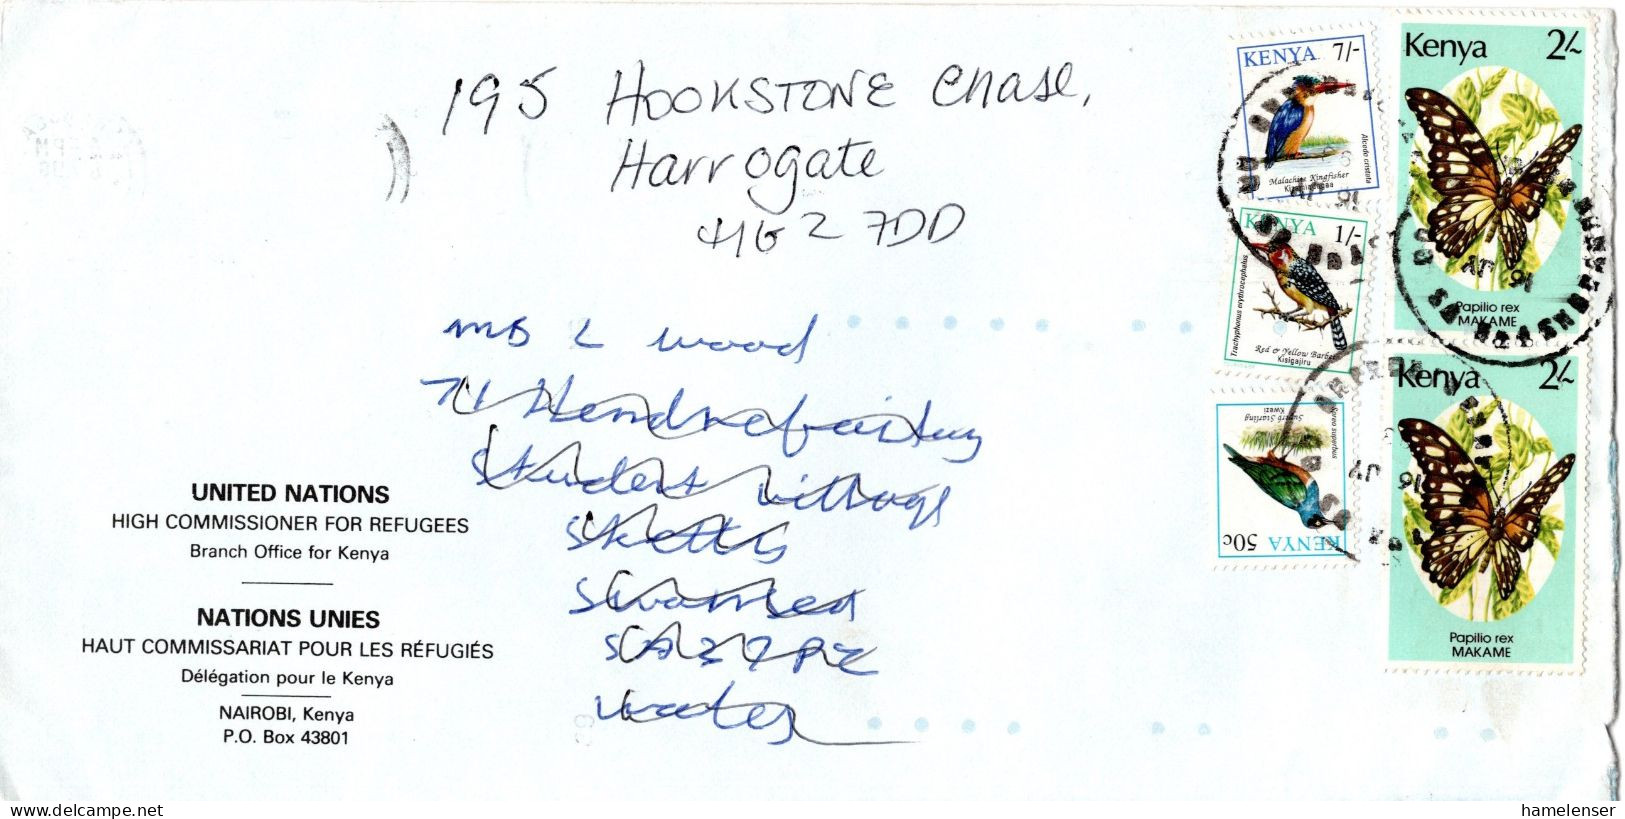 195 HOOKSTONE Chase,
Harrogate
HG2 7DD
L Wood
71 Hendrefoilan
Student Village
Sketty
Swansea
SA2 7PE
Wales
UNITED NATIONS
HIGH COMMISSIONER FOR REFUGEES
Branch Office for Kenya
NATIONS UNIES
HAUT COMMISSARIAT POUR LES RÉFUGIÉS
Délégation pour le Kenya
NAIROBI, Kenya
P.O. Box 43801
KENYA 7/-
Alcedo cristata
Malachite Kingfisher
KENYA 1/-
Trachyphonus erythrocephalus
Red & Yellow Barbet
Kisigajiru
KENYA 50c
Spreo superbus
Superb Starling
Kwezi
Kenya 2/-
Papilio rex
MAKAME
Kenya 2/-
Papilio rex
MAKAME
16 JY
16 JY
16 JY
www.delcampe.net
hamelenser